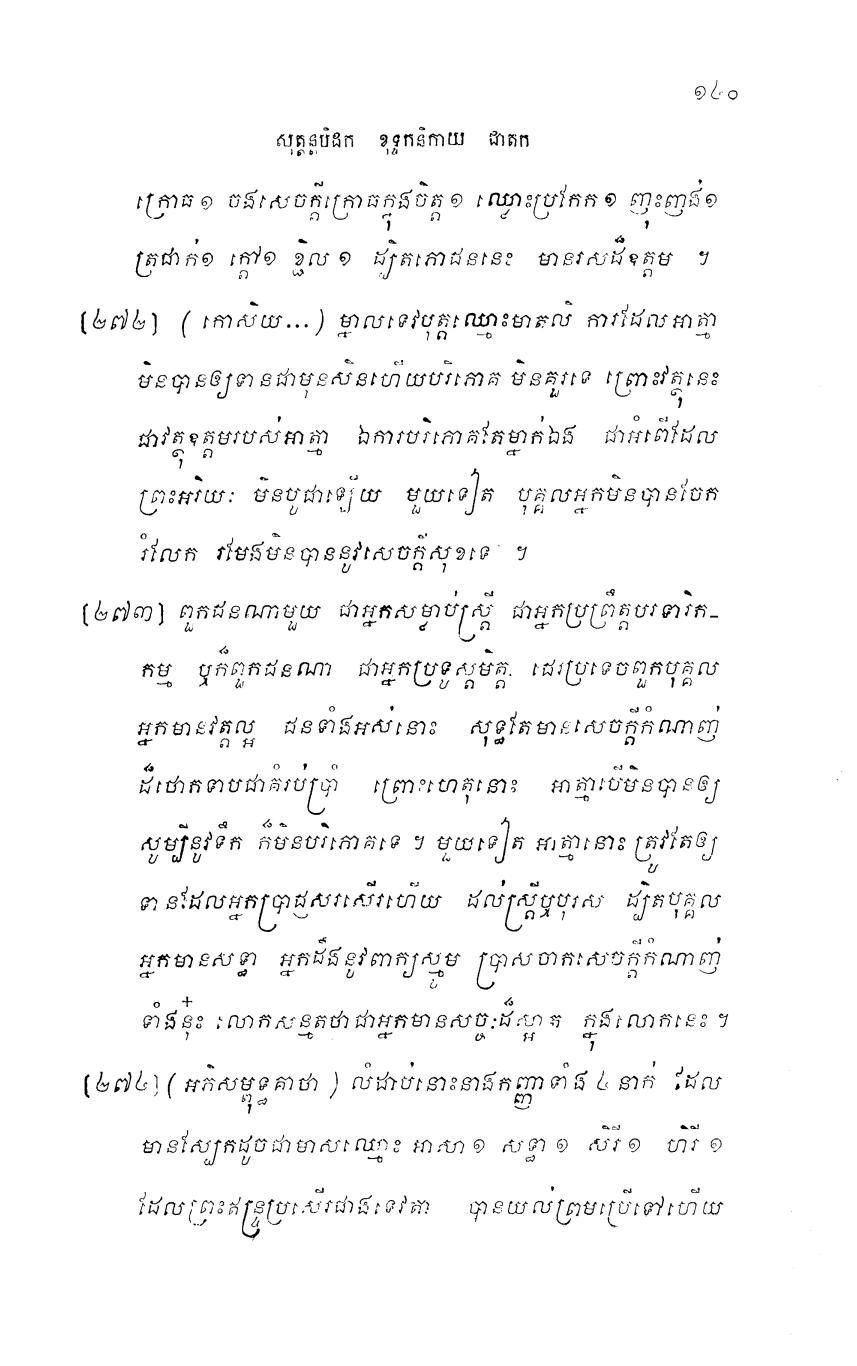 ១៤០
សុត្តន្តបិដក ខុទ្ទកនិកាយ ជាតក
ក្រោធ១ ចងសេចក្តីក្រោធក្នុងចិត្ត១ ឈ្លោះប្រកែក១ ញុះញង់១
ត្រជាក់១ ក្តៅ១ ខ្ជិល១ ដ្បិតភោជននេះ មានរសដ៏ឧត្តម ។
[២៧២] (កោសិយ...) ម្នាលទេវបុត្តឈ្មោះមាតលិ ការដែលអាត្មា
មិនបានឲ្យទានជាមុនសិនហើយបរិភោគ មិនគួរទេ ព្រោះវត្ថុនេះ
ជាវត្ថុឧត្តមរបស់អាត្មា ឯការបរិភោគតែម្នាក់ឯង ជាអំពើដែល
ព្រះអរិយៈ មិនបូជាឡើយ មួយទៀត បុគ្គលអ្នកមិនបានចែក
រំលែក រមែងមិនបាននូវសេចក្តីសុខទេ ។
[២៧៣] ពួកជនណាមួយ ជាអ្នកសម្លាប់ស្ត្រី ជាអ្នកប្រព្រឹត្តបរទារិក-
កម្ម ឬក៏ពួកជនណា ជាអ្នកប្រទូស្តមិត្ត ដេរប្រទេចពួកបុគ្គល
អ្នកមានវត្តល្អ ជនទាំងអស់នោះ សុទ្ធតែមានសេចក្តីកំណាញ់
ដ៏ថោកទាបជាគំរប់ប្រាំ ព្រោះហេតុនោះ អាត្មាបើមិនបានឲ្យ
សូម្បីនូវទឹក ក៏មិនបរិភោគទេ ។ មួយទៀត អាត្មានោះ ត្រូវតែឲ្យ
ទានដែលអ្នកប្រាជ្ញសរសើរហើយ ដល់ស្ត្រីឬបុរស ដ្បិតបុគ្គល
អ្នកមានសទ្ធា អ្នកដឹងនូវពាក្យស្មូម ប្រាសចាកសេចក្តីកំណាញ់
ទាំងនុ៎ះ លោកសន្មតថាជាអ្នកមានសច្ចៈដ៏ស្អាត ក្នុងលោកនេះ ។
[២៧៤] (អភិសម្ពុទ្ធគាថា) លំដាប់នោះនាងកញ្ញាទាំង ៤ នាក់ ដែល
មានស្បែកដូចជាមាសឈ្មោះ អាសា១ សទ្ធា១ សិរី១ ហិរី១
ដែលព្រះឥន្ទ្រប្រសើរជាងទេវតា បានយល់ព្រមប្រើទៅហើយ